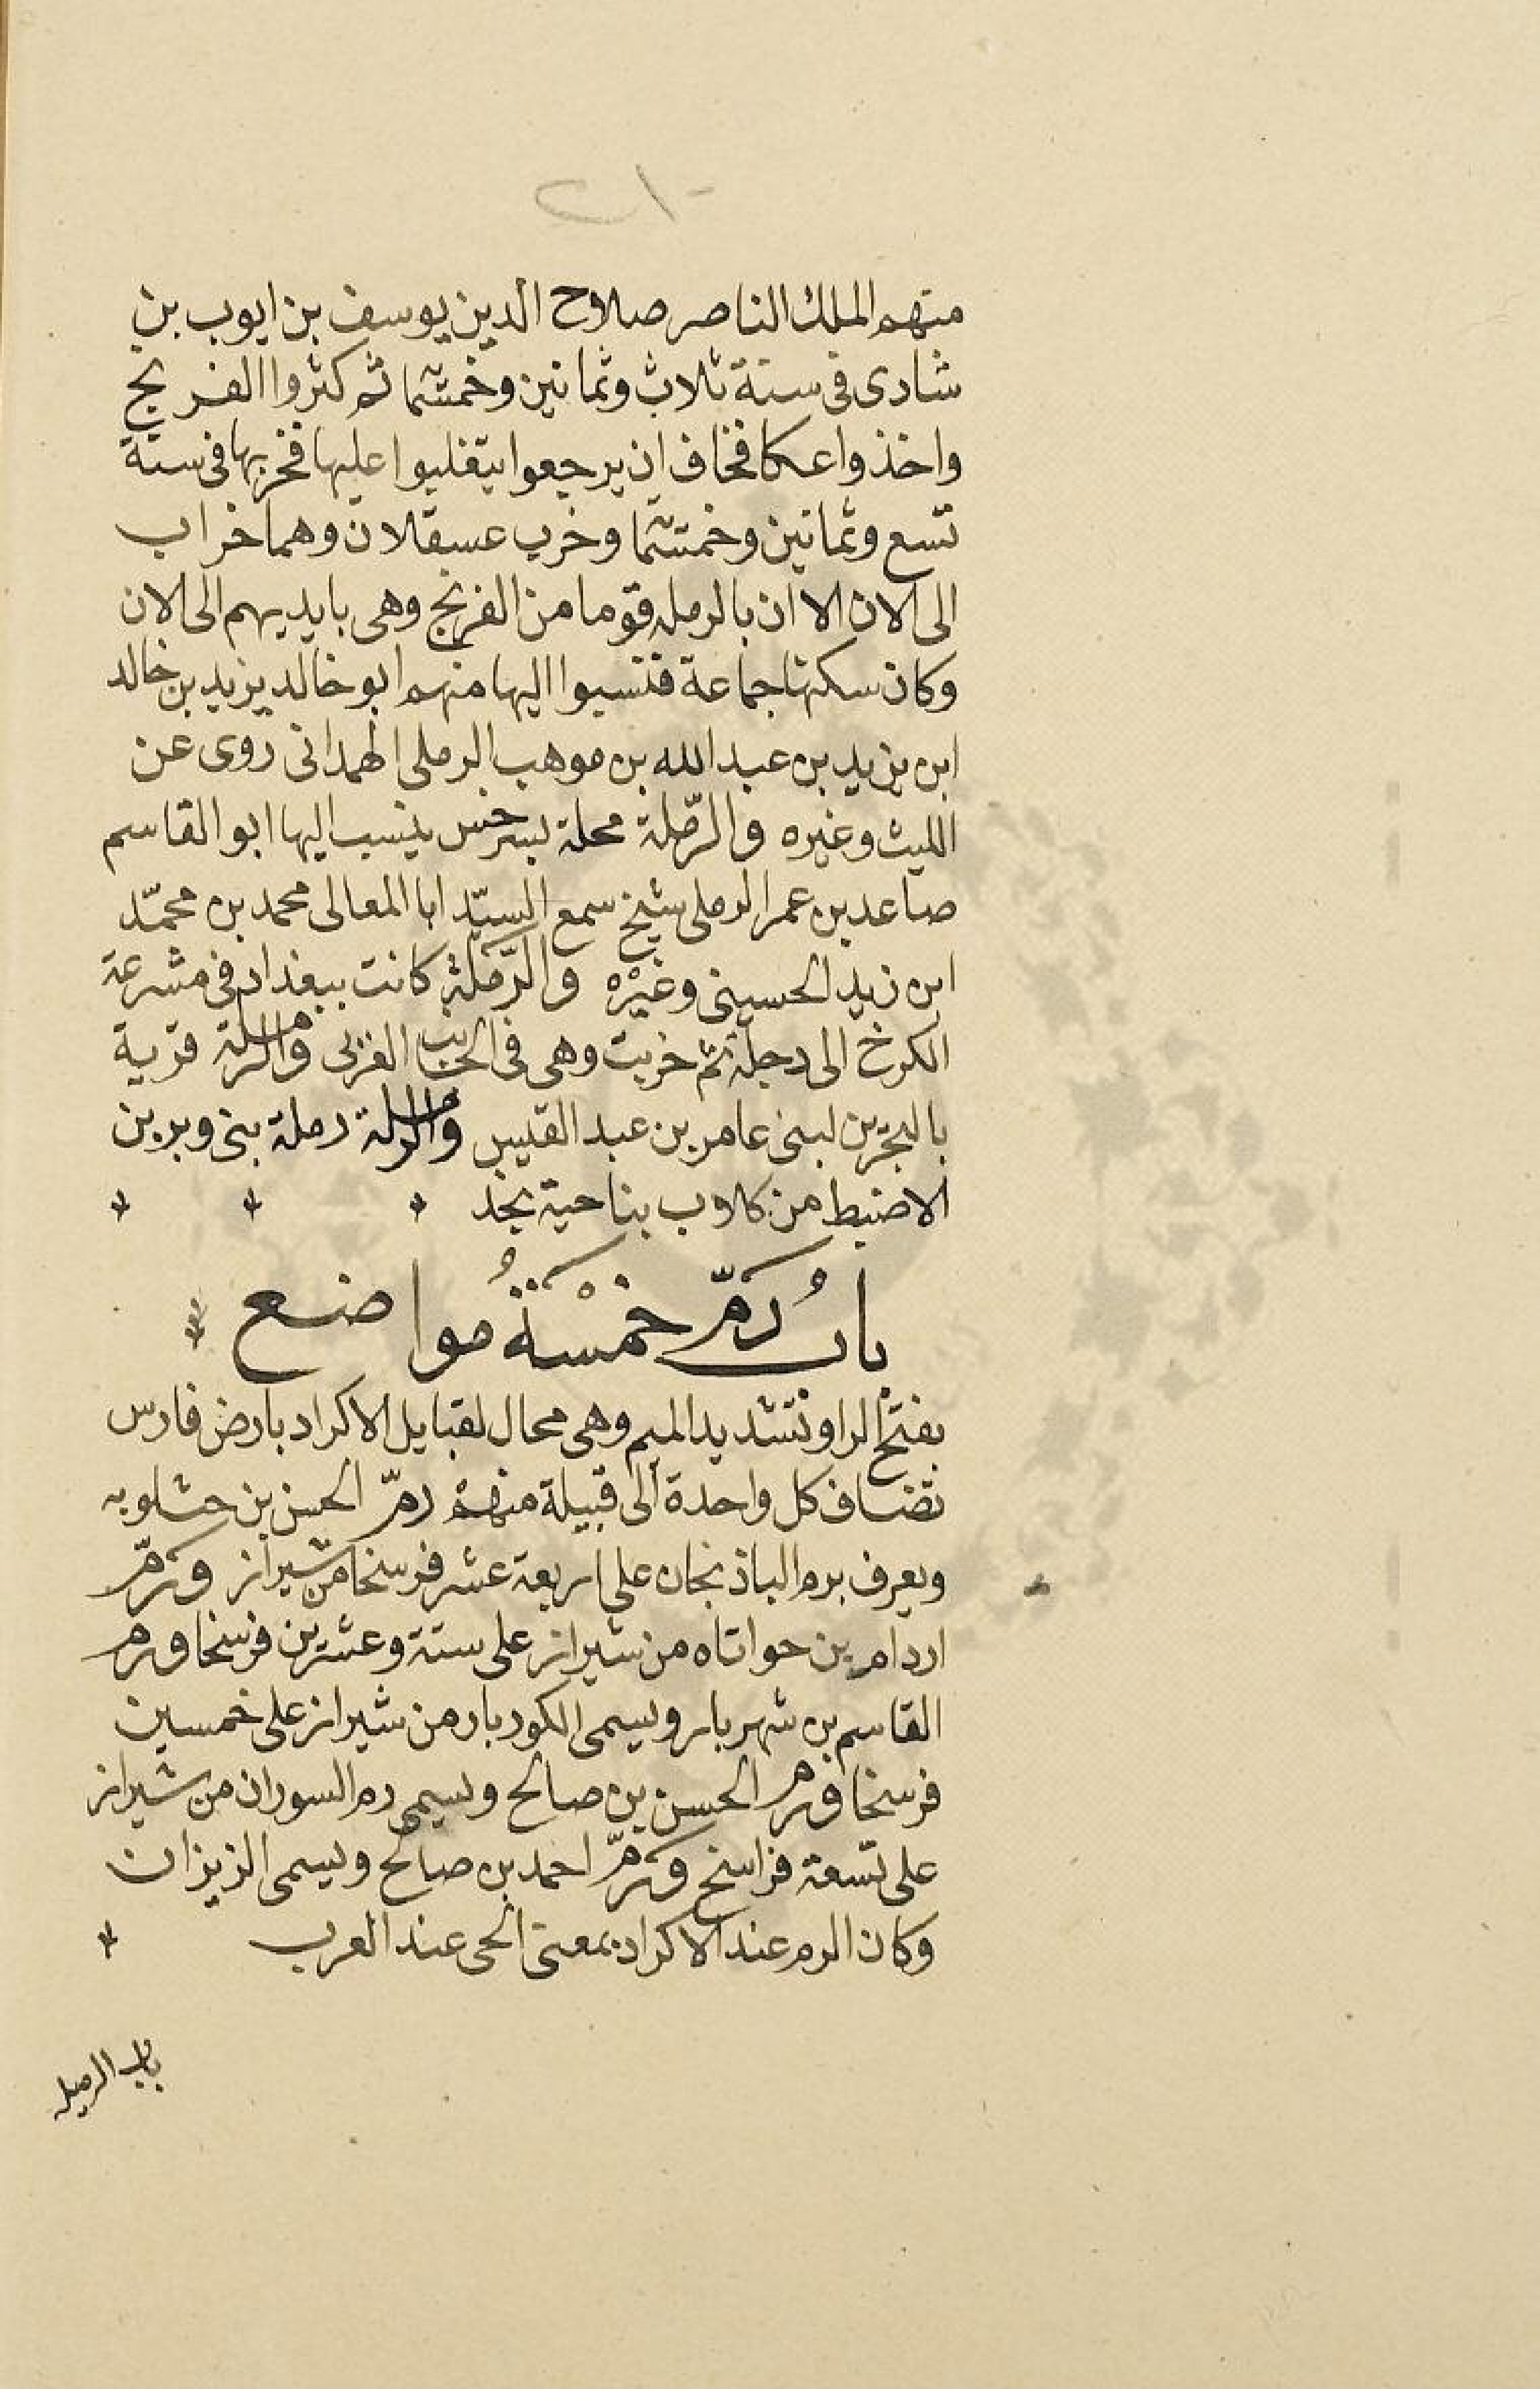 ٢١٠
منهم الملك الناصر صلاح الدين يوسف بن ايوب بن
شادى فى سنة ثلاث وثمانين وخمسما ثم كثروا الفرنج
واخذوا عكا فخاف ان يرجعوا يتغلبوا عليها فخربها فى سنة
تسع وثمانين وخمسما وخرب عسقلان وهما خراب
الى الان الا ان بالرمله قوما من الفرنج وهى بايديهم الى الان
وكان سكنها جماعة فنسبوا اليها منهم ابو خالد يزيد بن خالد
ابن يزيد بن عبد الله بن موهب الرملى الهمدانى روى عن
الليث وغيره والرّملة محلة بسرخس ينسب اليها ابو القاسم
صاعد بن عمر الرملى شيخ سمع السيّد ابا المعالى محمد بن محمّد
ابن زيد الحسينى وغيْره والرّملة كانت ببغداد فى مشرعة
الكرخ الى دجلة ثم خربت وهى فى الجانب الغربى والرملة قرية
بالبحرين لبنى عامر بن عبد القيس والرملة رملة بنى وبر بن
الاضبط من كلاب بناحية نجد
بابُ رَمّ خمْسَةُ مواضع
بفتح الرا وتشديد الميم وهى محال لقبايل الاكراد بارض فارس
تضاف كل واحدة الى قبيلة منهم رمّ الحسن بن حشلويه
ويعرف برم الباذنجان على اربعة عشر فرسخا من شيراز ورمّ
اردام بن حواتاه من شيراز على ستة وعشرين فرسخا ورم
القاسم بن شهربار ويسمى الكوربار من شيراز على خمسين
فرسخا ورم الحسن بن صالح ويسمى رم السوران من شيراز
على تسعة فراسخ ورمّ احمد بن صالح ويسمى الزيزان
وكان الرم عند الاكراد بمعنى الحى عند العرب
باب الرميله